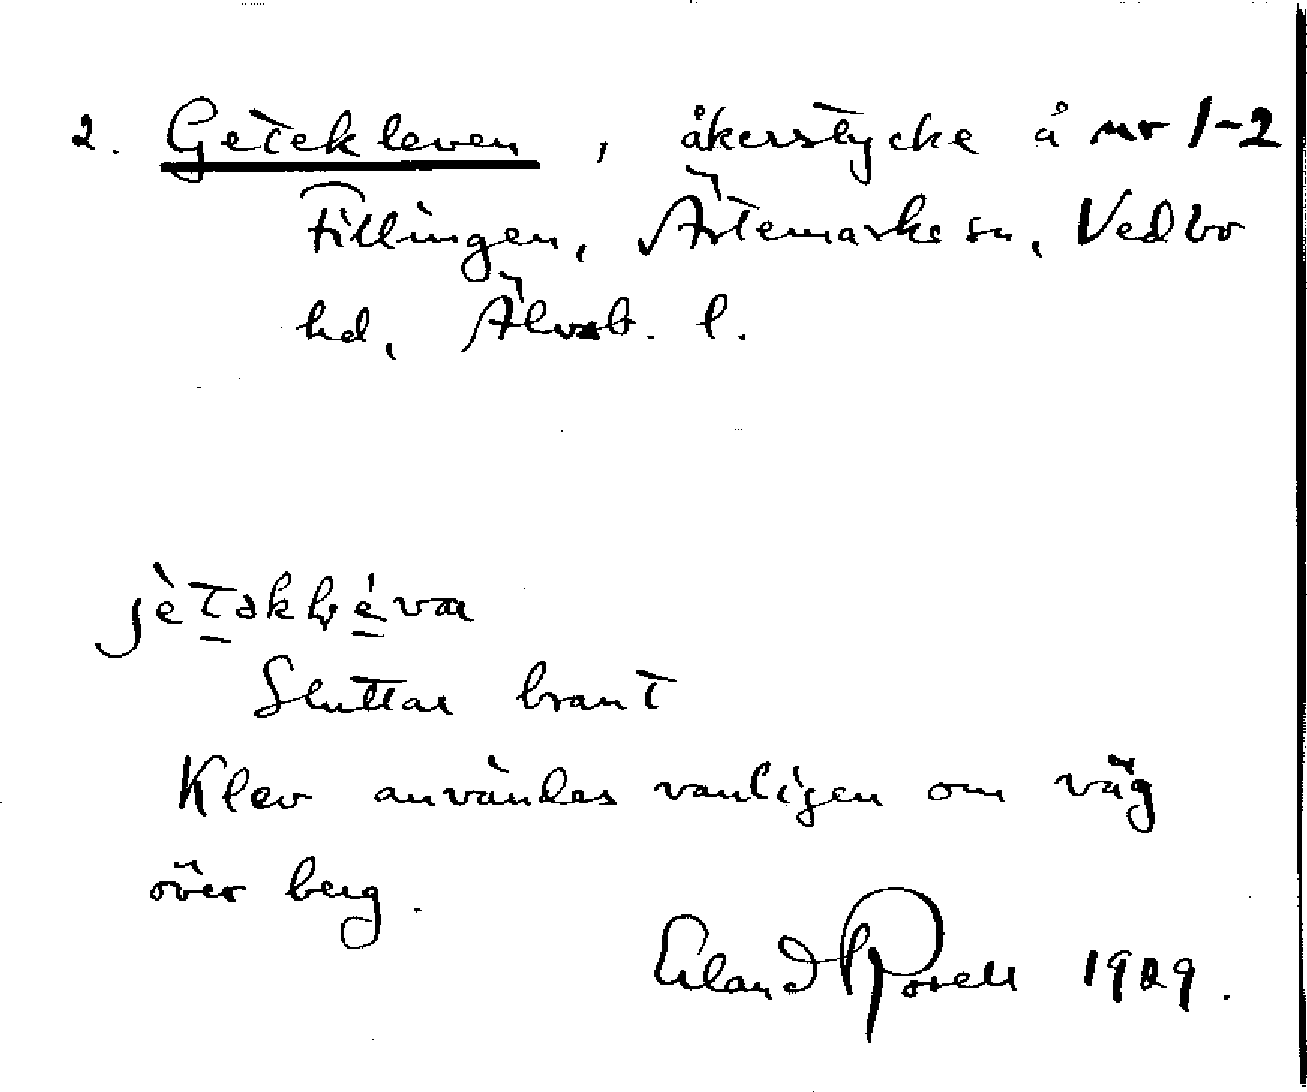 2. Getekleven, åkerstycke å nr 1-2
Fillingen, Ärtemarks sn, Vedbo
hd, Älvsb. l.
jètəkḷéva
Sluttar brant
Klev användes vanligen om väg
över berg.
Erland Rosell 1929.